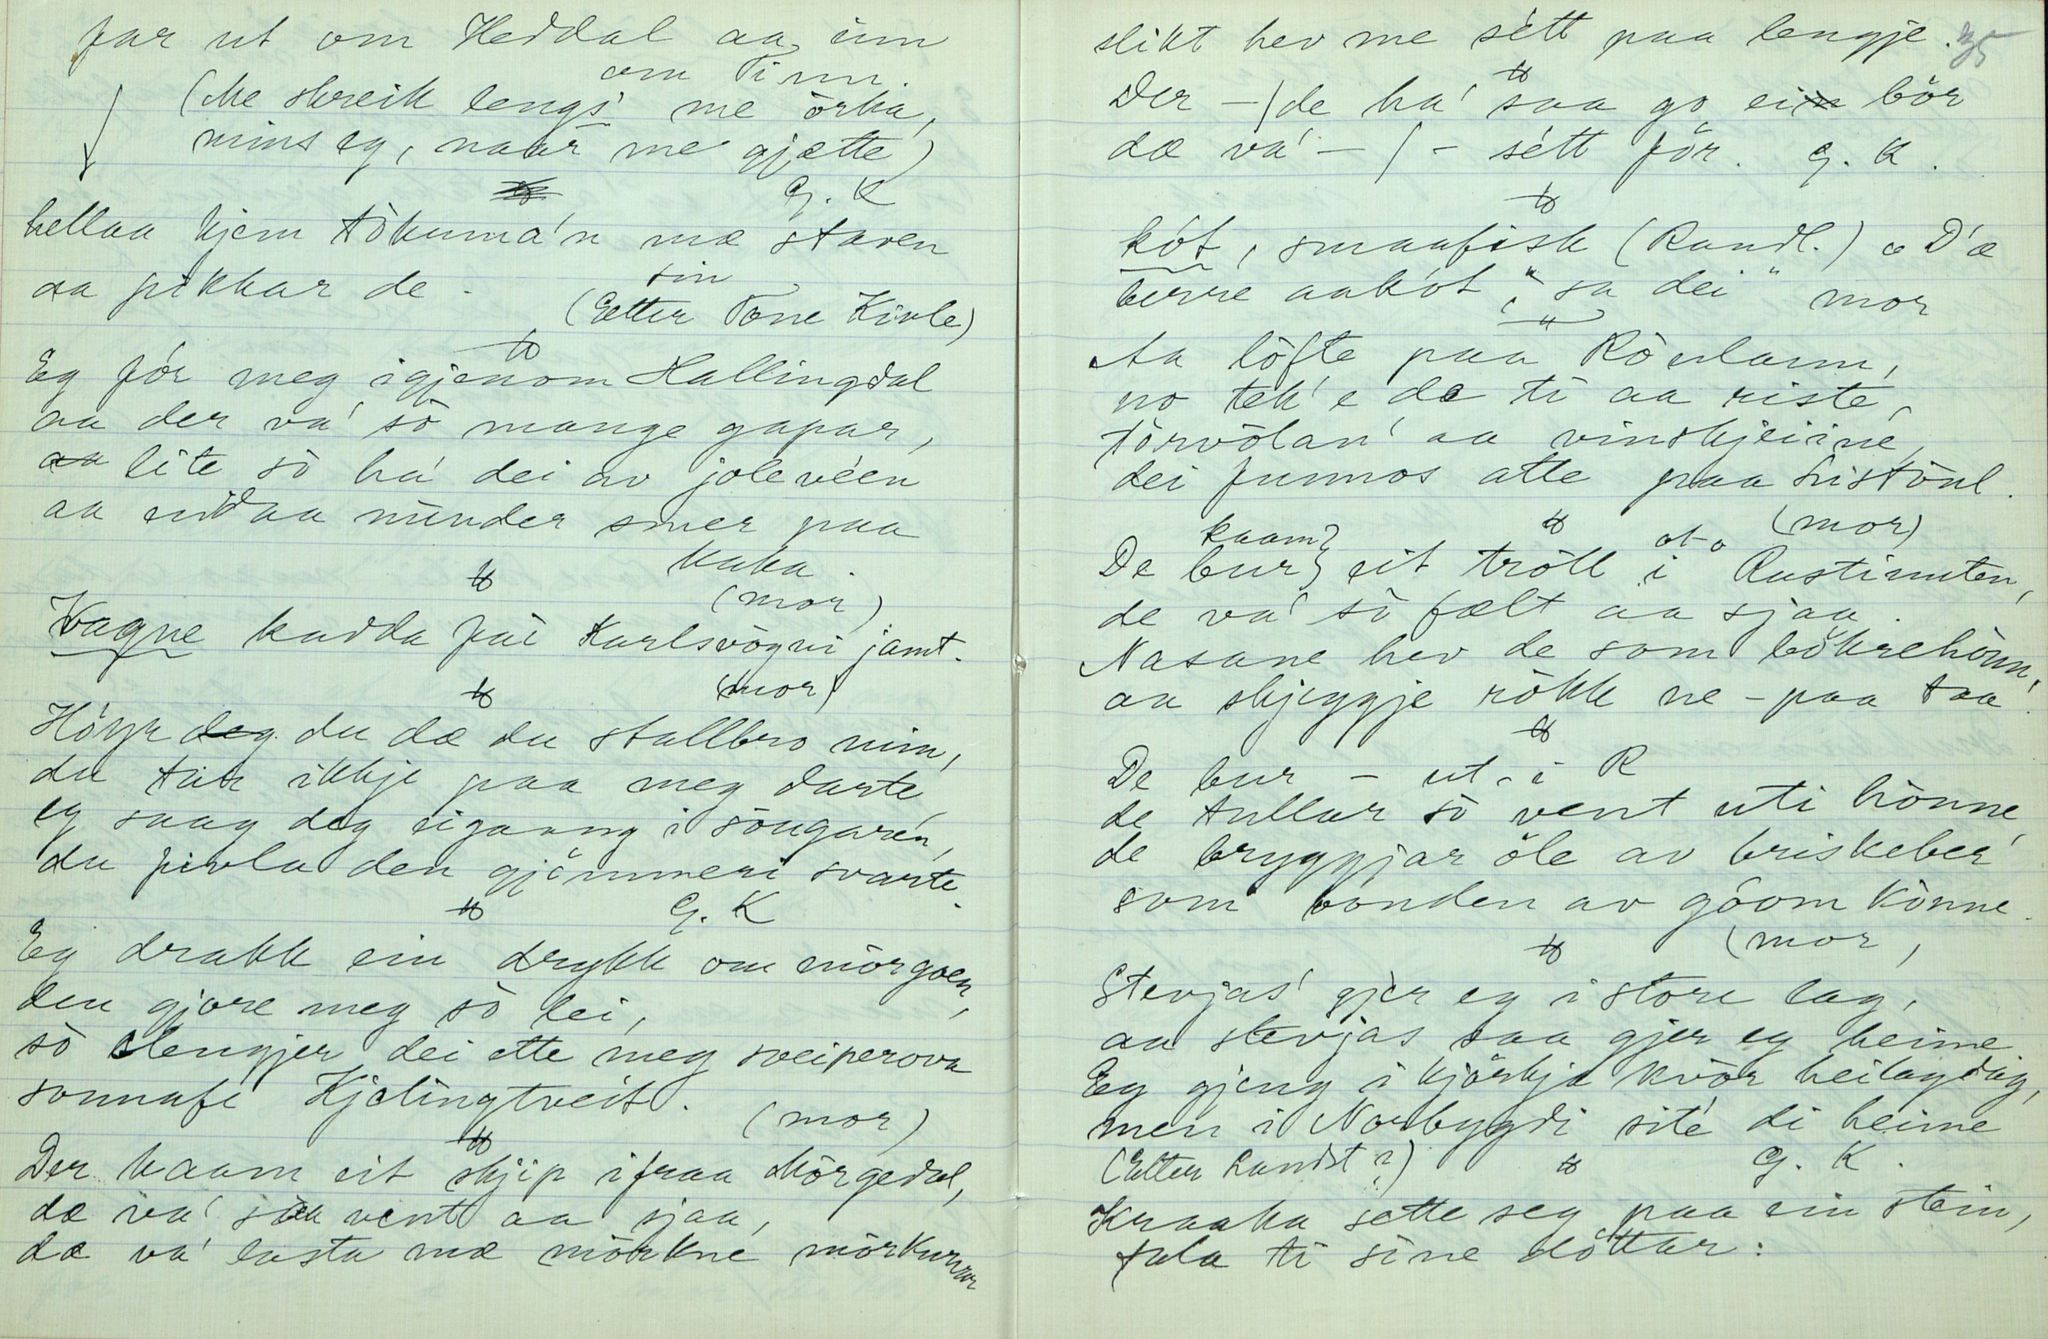 far ut om Heddal aa, inn
om Tinn.
(Me skreik lengs' me örka,
mins eg, naar me gjætte)
G. K
hellaa kjem tökuma'n mæ staven
sin
aa pikkar de.
(Etter Tone Kivle)
Eg fór meg igjenom Hallingdal
aa der va' sò mange gapar,
lite sò ha' dei av joleveen
aa endaa minder smer paa
kaka.
(mor)
Vagne kadda fai Karlsvögni jamt.
(mor)
Höyr du dæ du stallbro min,
du tar ikkje paa meg darte,
eg saag deg eigaang i söugaren,
du pivla den gjömmeri svarte.
G. K
Eg drakk ein drykk om mörgoen,
den gjore meg sò lei,
sò slengjer dei ette meg sveiperova
sonnafe Kjelingtveit.
(mor)
Der kaam eit skjip ifraa Mörgedal,
dæ va' saa vent aa sjaa,
dæ va' lasta mæ mörkne mörkurar
35
slikt hev me sétt paa lengje.
Der —/de ha' saa go ei bör
dæ va' —/— sétt för. G. K.
kót, smaafisk (Raudl.) "D'æ
berre aakót", sa dei" mor
Aa löfte paa Röulann,
no tek'e de ti aa riste,
törvölan' aa vindskjeiine,
dei funnos atte paa Listöul.
(mor)
kaam?
De bur} eit tröll ut i Rustinuten,
de va' sò fælt aa sjaa.
Nasane hev de som bökrehönn,
aa skjeggje rökk ne-paa taa.
De bur — ut i R
de tullar sò vent uti hönne,
de bryggjar öle av briskeber'
som bonden av góom könne.
(mor)
Stevjas' gjer eg i store lag,
aa stevjas saa gjer eg heime
Eg gjeng i kjörkja kvör heilagdag,
men i Norbygdi site' di heime
(Etter Landst?) G. K.
Kraaka sette seg paa ein stein,
tala ti sine döttar: